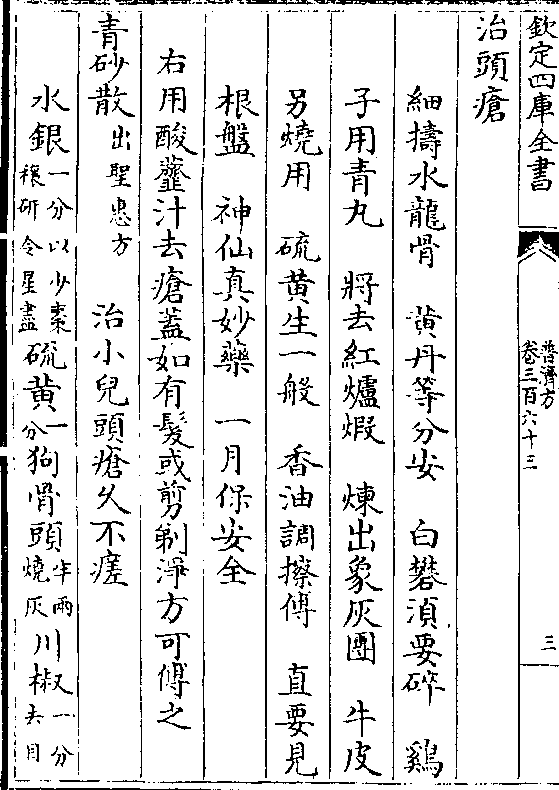 欽定四庫全書
普濟方
卷三百六十三
三
治頭瘡
細擣水龍骨　黄丹等分安　白礬湏要碎　鷄
子用青丸　將去紅爐煆　煉出象灰團　牛皮
另燒用　硫黄生一般　香油調搽傅　直要見
根盤　神仙真妙藥　一月保安全
右用酸虀汁去瘡蓋如有髮或剪剃淨方可傅之
青砂散出聖惠方　治小兒頭瘡久不瘥
水銀一分以少棗穰研令星盡硫黄一分狗骨頭半兩燒灰川椒一分去目